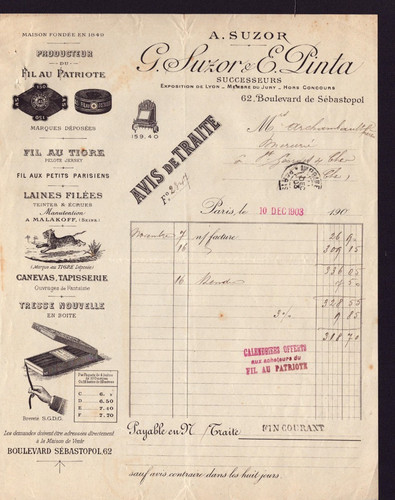 MAISON FONDÉE EN 1840
PRODUCTEUR
DU
FIL AU PATRIOTE
MARQUES DÉPOSÉES
FIL AU TIGRE
PELOTE JERSEY
FIL AUX PETITS PARISIENS
LAINES FILÉES
TEINTES & ÉCRUES
Manutention
A MALAKOFF, (Seine)
(Marque au TIGRE Déposée)
CANEVAS, TAPISSERIE
Ouvrages de Fantaisie
TRESSE NOUVELLE
EN BOITE
D. 6.50
E. 7.40
F. 7.70
Breveté S.G.D.G.
Les demandes doivent être adressées directement
à la Maison de Vente
BOULEVARD SÉBASTOPOL 62
A. SUZOR
G. Suzor & E. Pinta
SUCCESSEURS
EXPOSITION DE LYON - MEMBRE DU JURY - HORS CONCOURS
62, Boulevard de Sébastopol
159.40
AVIS DE TRAITE
Paris, le 10 DEC 1903 190
Novembre 7 n/ facture 26 90
16 309 15
336 05
16
328 55
3% 9 85
318 70
CALENDRIERS OFFERTS
aux acheteurs du
FIL AU PATRIOTE
Payable en N/Traite FIN COURANT
sauf avis contraire dans les huit jours.